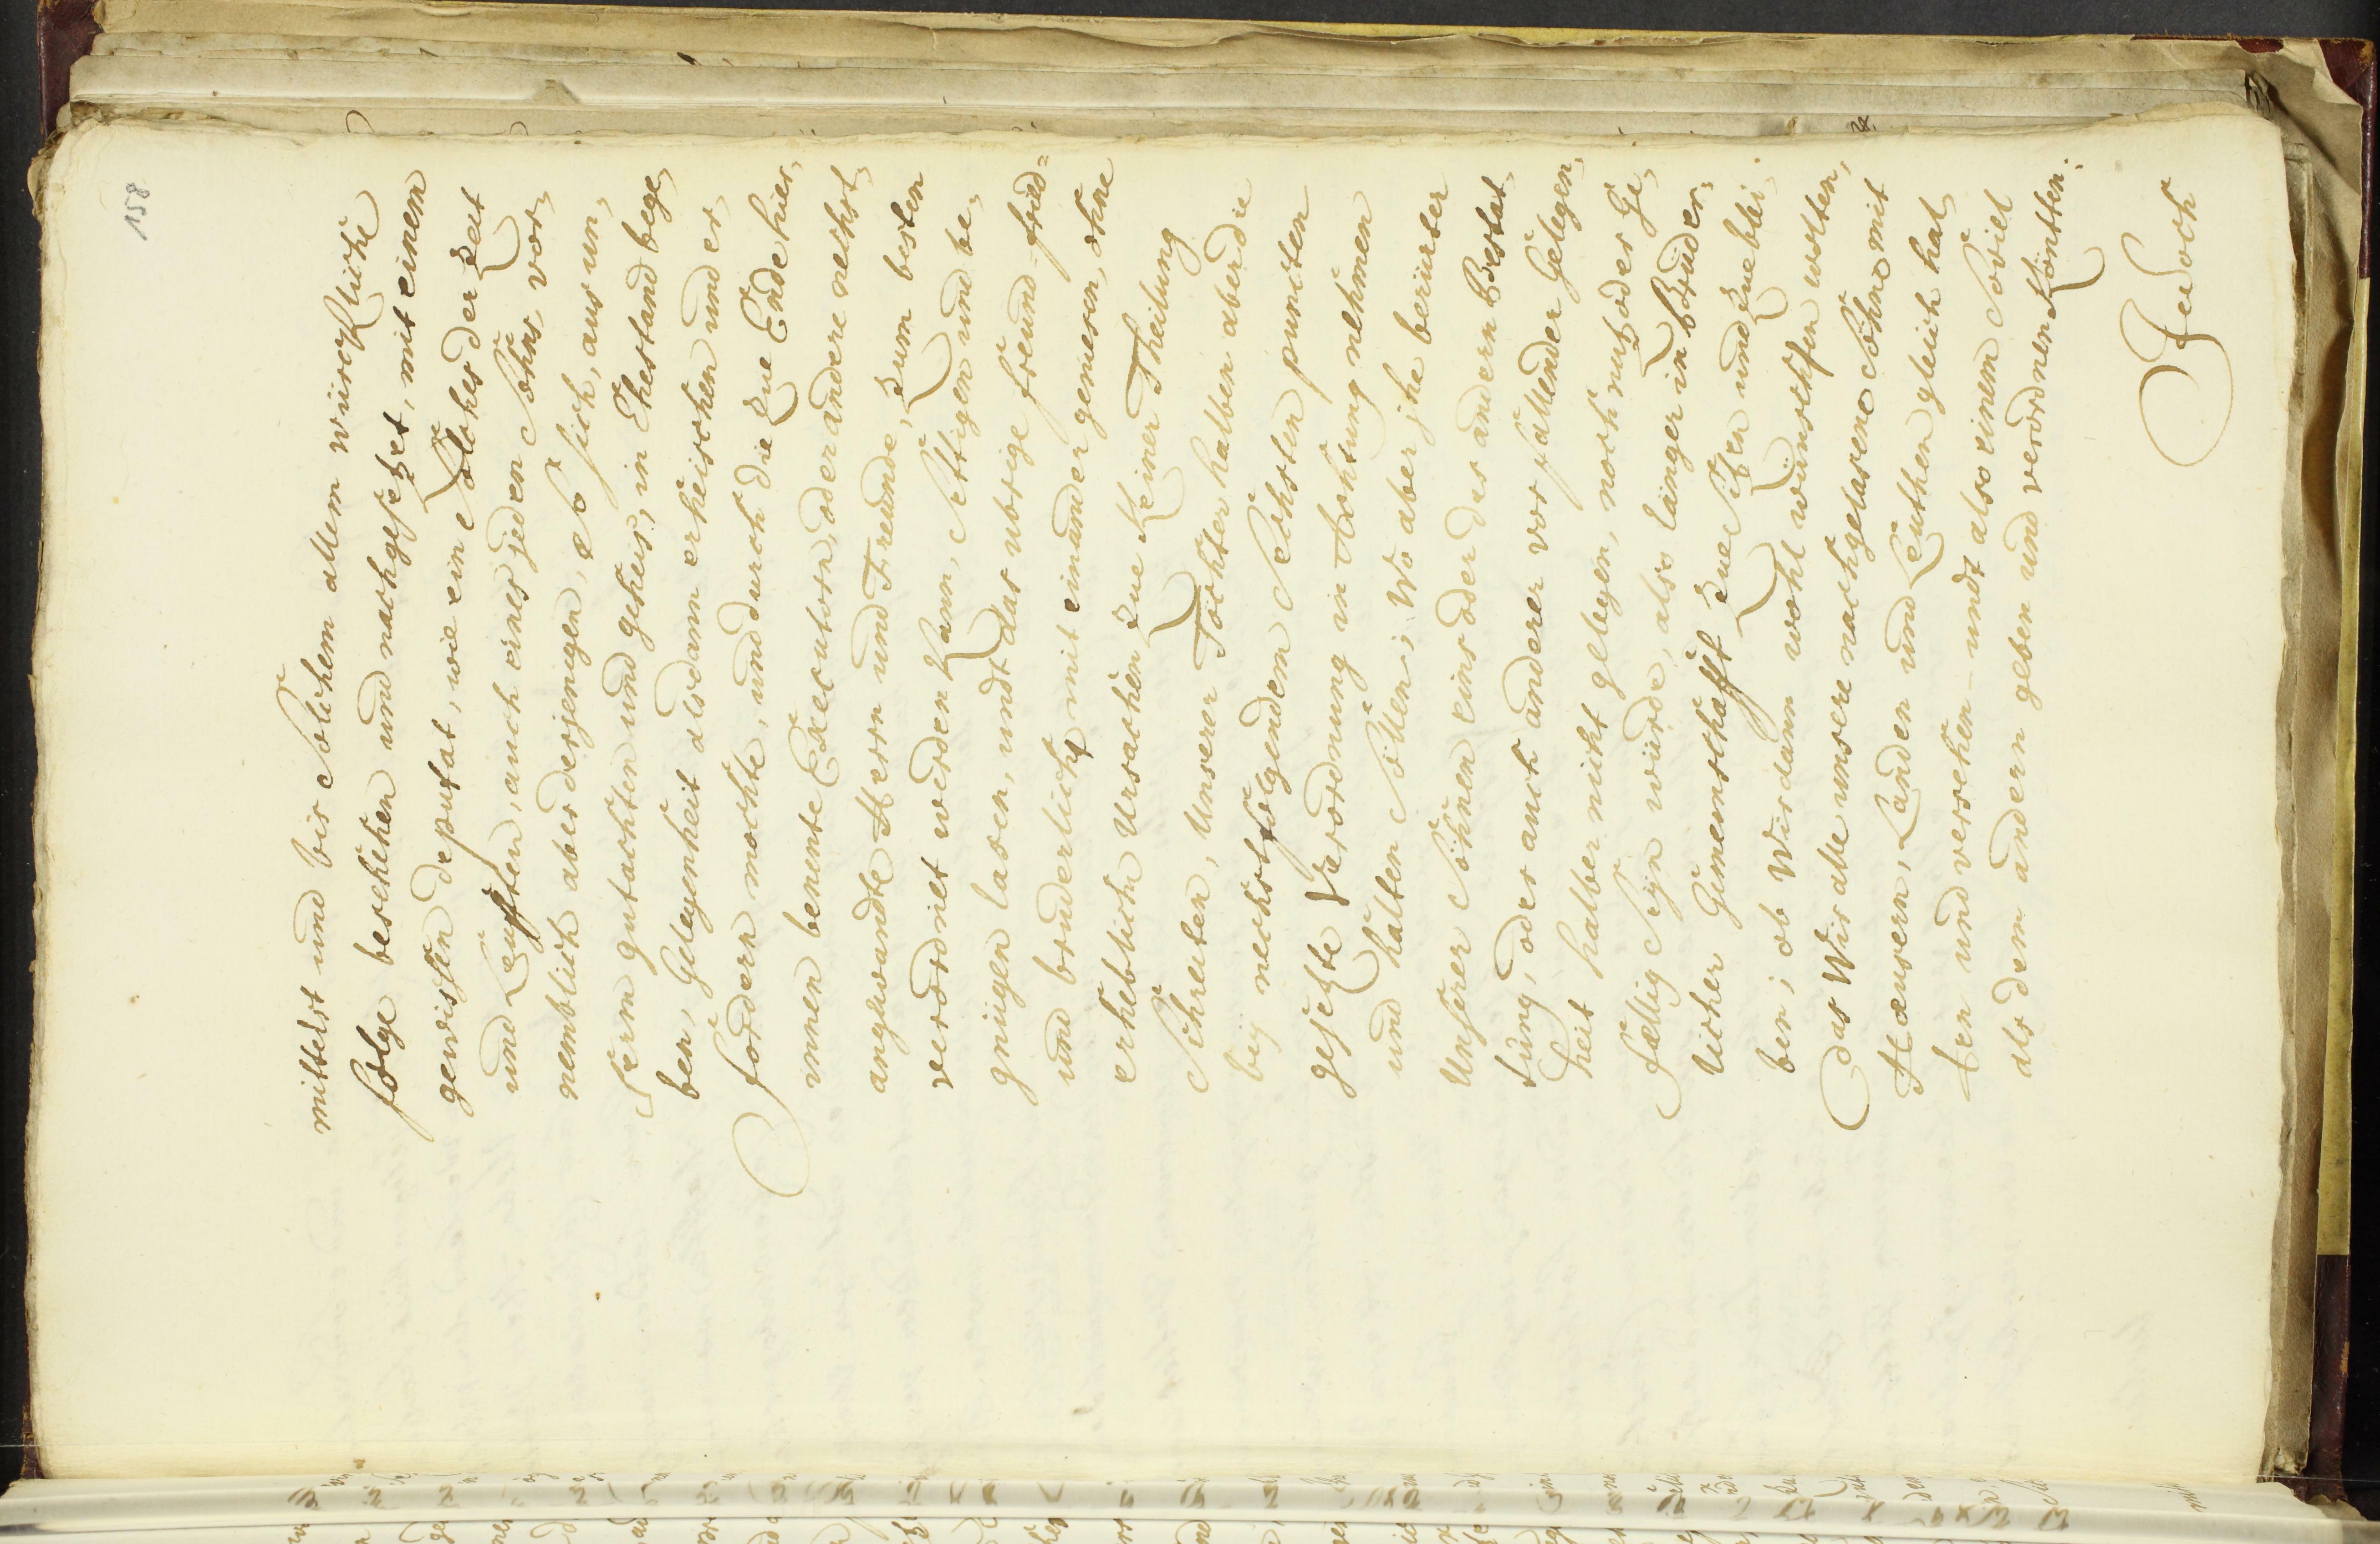 158
mittelst und bis Solchem allem würcKliche
folge beschehen und nachgesetzet, mit einem
gewissen deputat, wie ein Solches der Zeit
und Leufften, auch eines jeden Sohns vor,
nemblich aber derjenigen, So sich, aus un,
serm gutachten und geheis, in Ehestand bege,
ben, Gelegenheit alsdann erheischen und er,
fordern mochte, und durch die zue Ende hier,
innen benente Executorn, oder andere nechst,
angewandte Herrn und Freunde, zum besten
verordnet werden Kann, Settigen und be,
gnügen lasen, undt das ubrige freund- fried=
und bruderlich mit einander geniesen, ohne
erheblichen Ursachen zue Keiner Theilung
Schreiten, Unserer Töchter halben aber die
bey nechstfolgendem Sechsten puncten
gesetzte Verordnung in Achtung nehmen
und halten Sollen; Wo aber jhe berürter
Unserer Söhnen eins oder des andern Bestat,
tung, oder auch anderer vorfallender Gelegen,
heit halber nicht gelegen, noch nutz oder Ge,
fellig Seyn würde, also länger in Brüder,
licher Gemeinschafft zue Sitzen und zue blei,
ben; ob Wir dann wohl wünschen wolten,
das Wir alle unsere nachgelasene Söhne mit
Heusern, Landen und Leuthen gleich hal,
ten und versehen- undt also einem Soviel
als dem andern geben und verordnen Köntten:
Jedoch